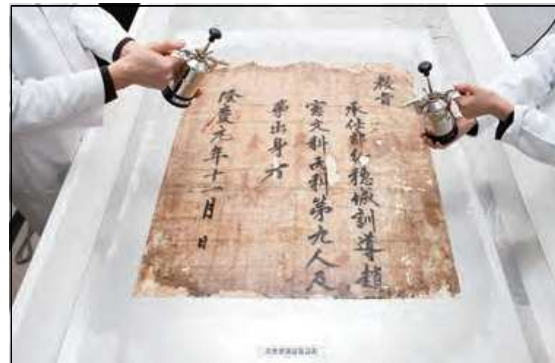 敎旨
承仕郎行穩城訓導趙
憲文科丙科第九人及
第出身者
隆慶元年十一月 日